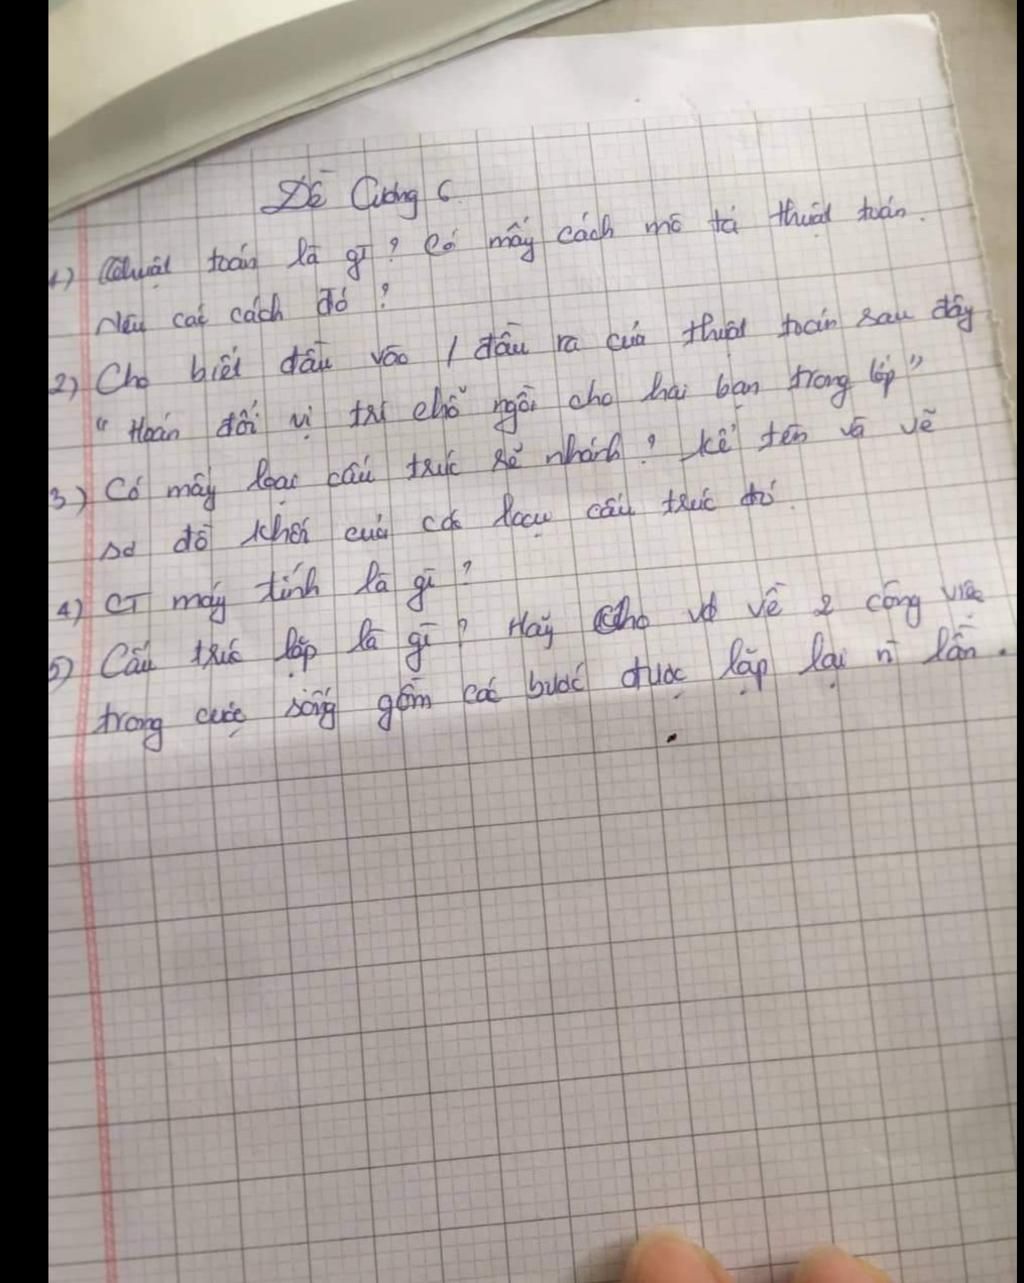 Đề Cương 6
1) Thuật toán là gì? Có mấy cách mô tả thuật toán.
Nêu các cách đó?
2) Cho biết đầu vào / đầu ra của thuật toán sau đây
"Hoán đổi vị trí chỗ ngồi cho hai bạn trong lớp"
3) Có mấy loại cấu trúc rẽ nhánh? kể tên và vẽ
sơ đồ khối của các loại cấu trúc đó.
4) CT máy tính là gì?
5) Cấu trúc lặp là gì? Hãy cho vd về 2 công việc
trong cuộc sống gồm các bước được lặp lại n lần.